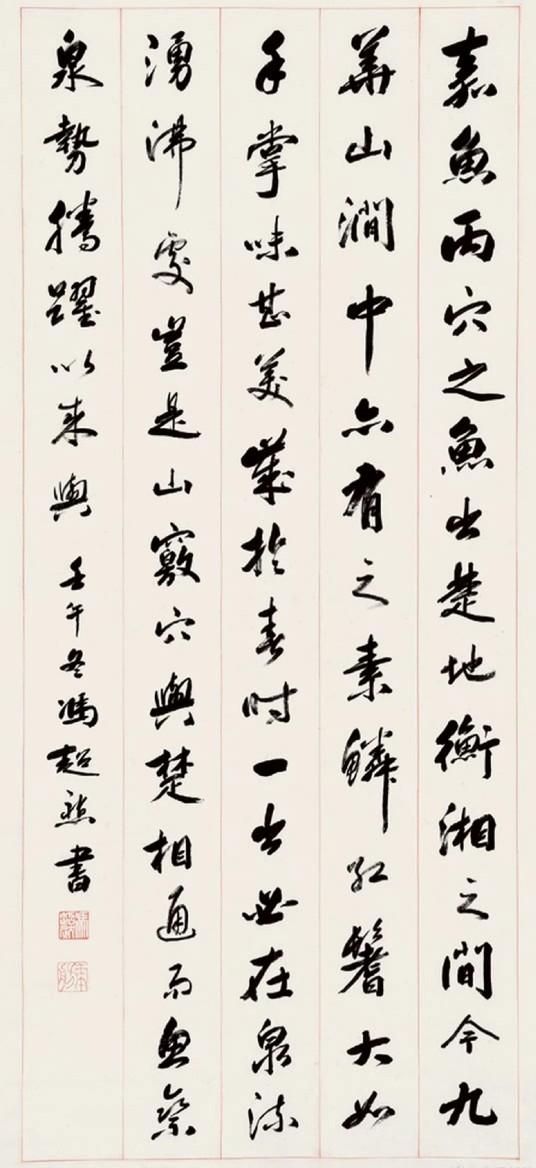 嘉魚丙穴之魚出楚地衡湘之間今九
華山澗中亦有之素鱗紅鬐大如
手掌味甚美歲於春時一出必在泉流
湧沸處豈是山竅穴與楚相通而魚乘
泉勢騰躍以來與 壬午冬馮超然書